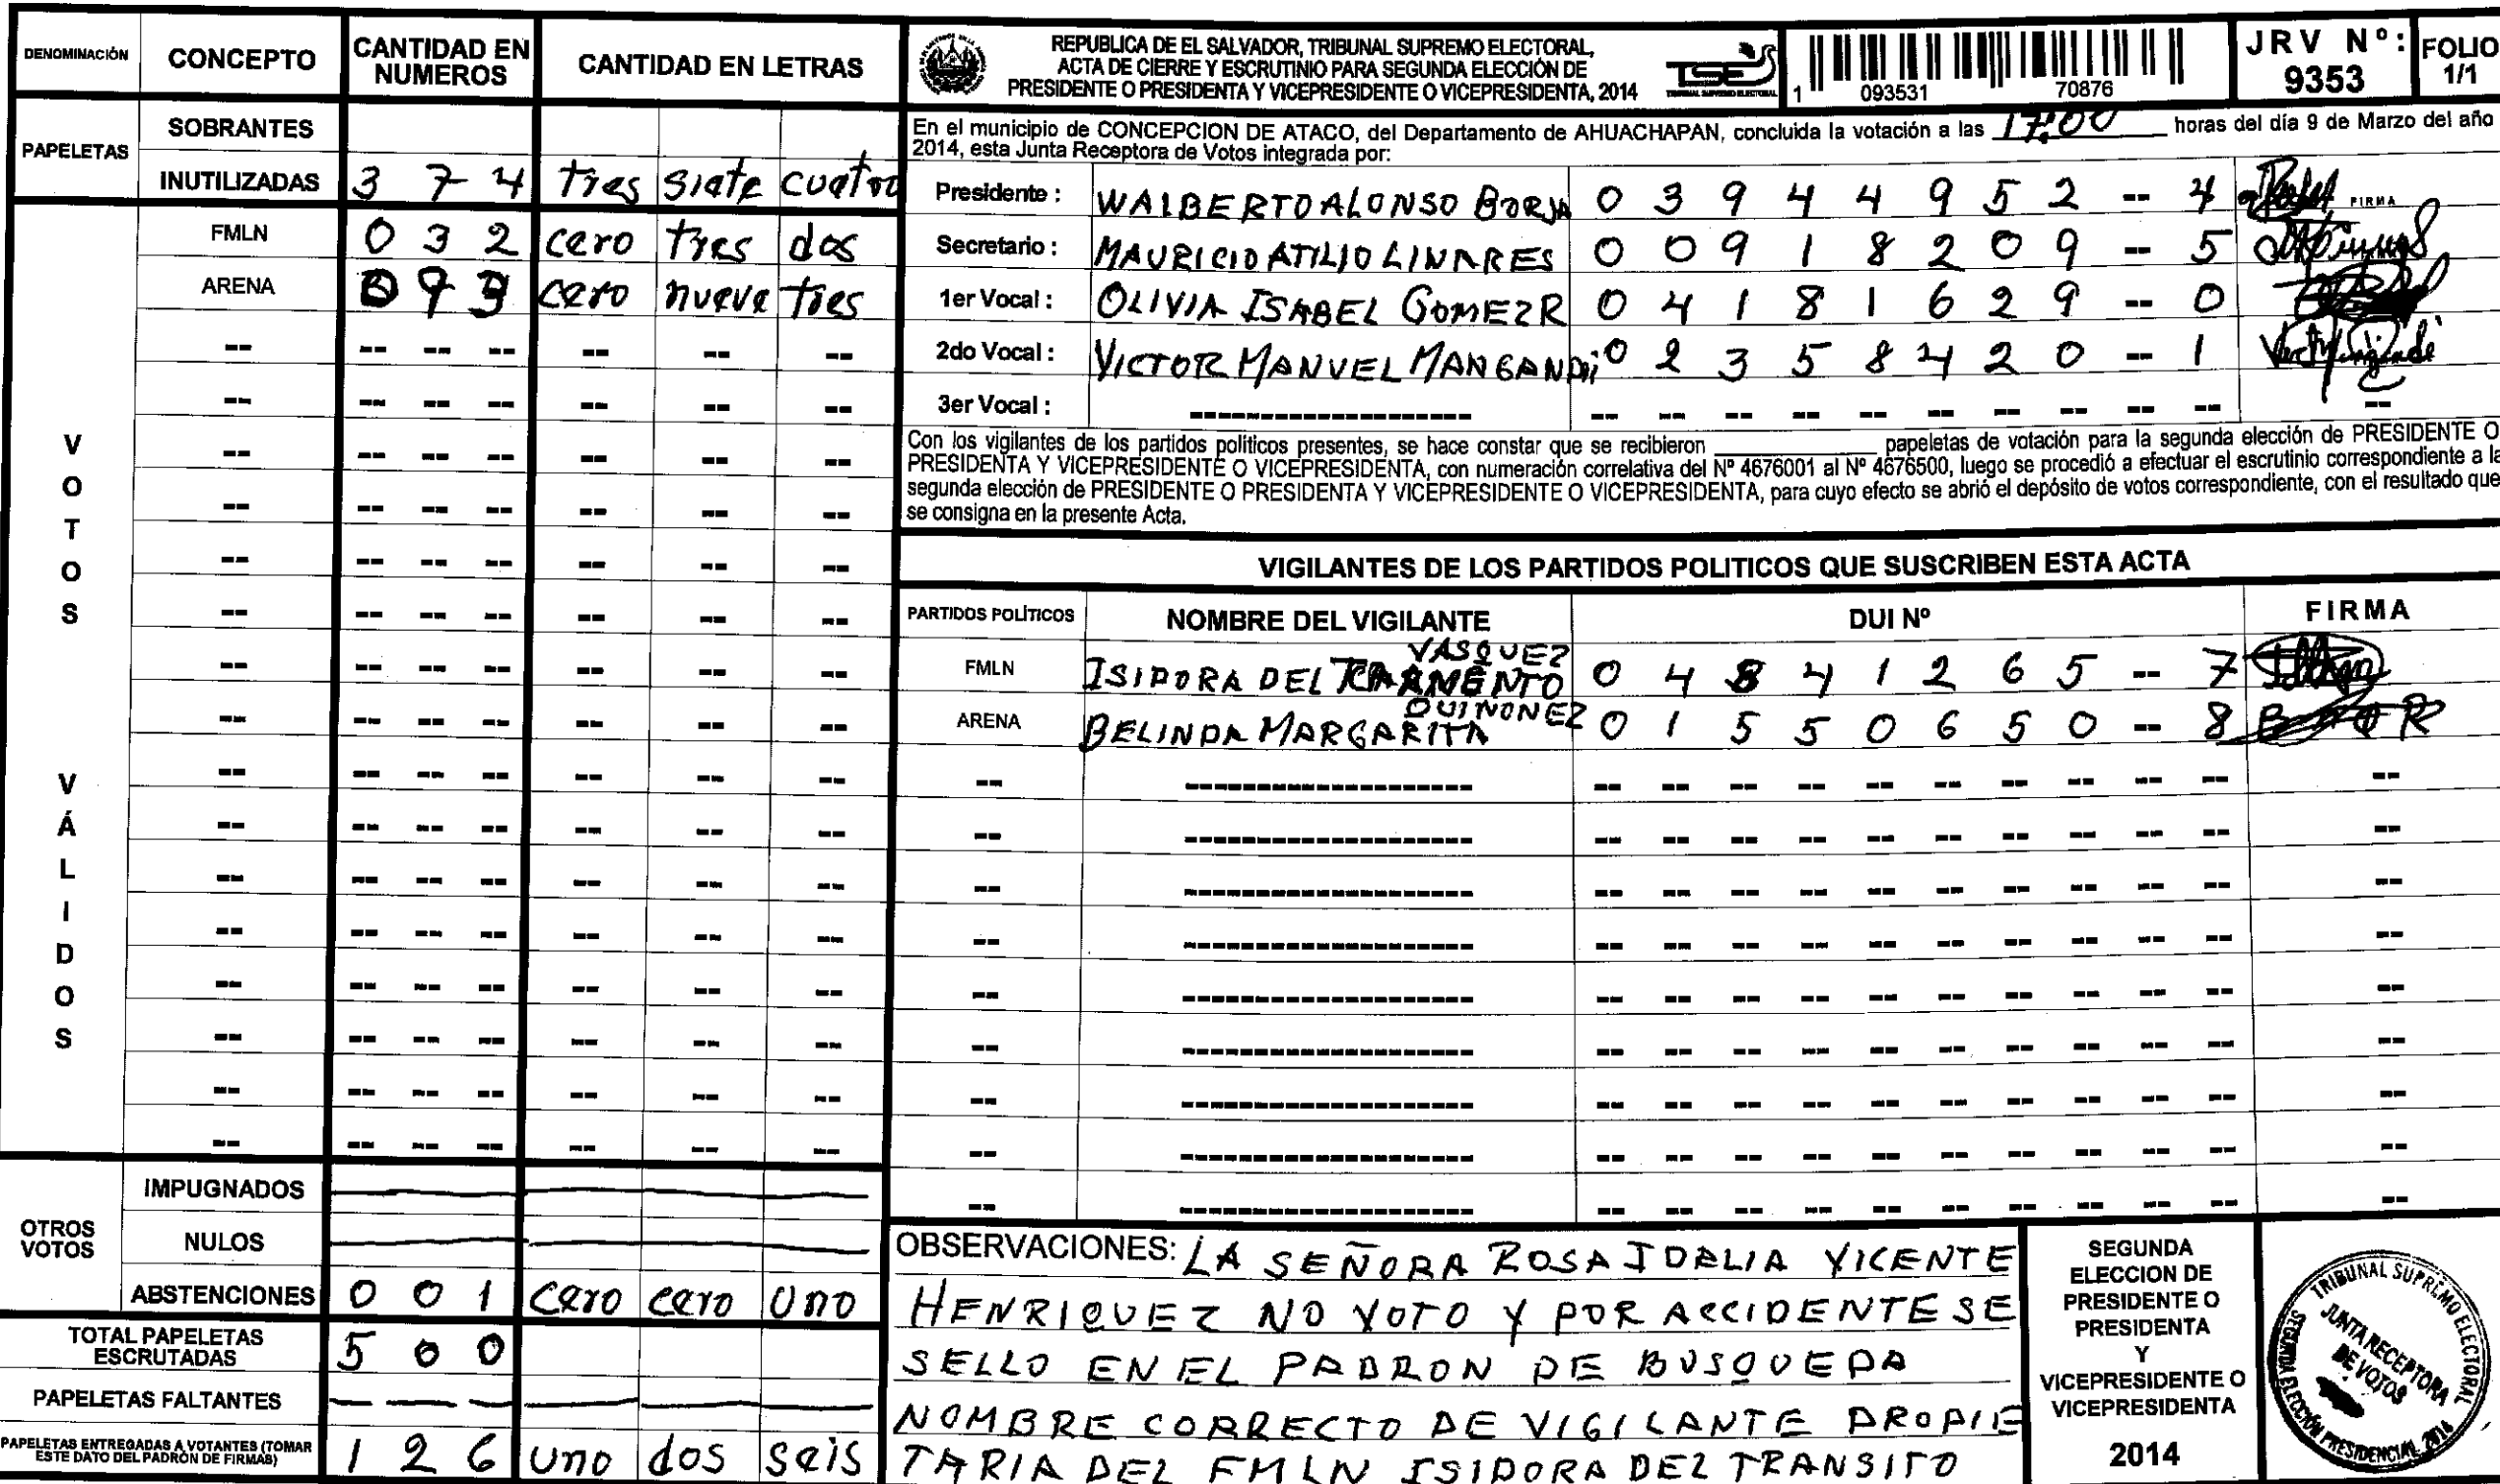 DENOMINACIÓN CONCEPTO CANTIDAD EN NUMEROS CANTIDAD EN LETRAS
PAPELETAS
SOBRANTES
INUTILIZADAS 3 7 4 tres siete cuatro
VOTOS VÁLIDOS
FMLN 0 3 2 cero tres dos
ARENA 0 9 3 cero nueve tres
OTROS VOTOS
IMPUGNADOS
NULOS
ABSTENCIONES 0 0 1 cero cero uno
TOTAL PAPELETAS ESCRUTADAS 5 0 0
PAPELETAS FALTANTES
PAPELETAS ENTREGADAS A VOTANTES (TOMAR ESTE DATO DEL PADRÓN DE FIRMAS) 1 2 6 uno dos seis
REPUBLICA DE EL SALVADOR, TRIBUNAL SUPREMO ELECTORAL,
ACTA DE CIERRE Y ESCRUTINIO PARA SEGUNDA ELECCIÓN DE
PRESIDENTE O PRESIDENTA Y VICEPRESIDENTE O VICEPRESIDENTA, 2014
TSE
TRIBUNAL SUPREMO ELECTORAL
1 093531 70876
JRV Nº: 9353
FOLIO 1/1
En el municipio de CONCEPCION DE ATACO, del Departamento de AHUACHAPAN, concluida la votación a las 17:00 horas del día 9 de Marzo del año
2014, esta Junta Receptora de Votos integrada por:
Presidente : WALBERTO ALONSO BORJA 0 3 9 4 4 9 5 2 -- 4 FIRMA
Secretario : MAURICIO ATILIO LINARES 0 0 9 1 8 2 0 9 -- 5
1er Vocal : OLIVIA ISABEL GOMEZ R 0 4 1 8 1 6 2 9 -- 0
2do Vocal : VICTOR MANUEL MANGANDI 0 2 3 5 8 4 2 0 -- 1
3er Vocal :
Con los vigilantes de los partidos politicos presentes, se hace constar que se recibieron ________ papeletas de votación para la segunda elección de PRESIDENTE O
PRESIDENTA Y VICEPRESIDENTE O VICEPRESIDENTA, con numeración correlativa del Nº 4676001 al Nº 4676500, luego se procedió a efectuar el escrutinio correspondiente a la
segunda elección de PRESIDENTE O PRESIDENTA Y VICEPRESIDENTE O VICEPRESIDENTA, para cuyo efecto se abrió el depósito de votos correspondiente, con el resultado que
se consigna en la presente Acta.
VIGILANTES DE LOS PARTIDOS POLITICOS QUE SUSCRIBEN ESTA ACTA
PARTIDOS POLÍTICOS NOMBRE DEL VIGILANTE DUI Nº FIRMA
FMLN ISIDORA DEL VASQUEZ 0 4 8 4 1 2 6 5 -- 7
ARENA BELINDA MARGARITA QUINONEZ 0 1 5 5 0 6 5 0 -- 8
OBSERVACIONES: LA SEÑORA ROSA IDALIA VICENTE
HENRIQUEZ NO VOTO Y POR ACCIDENTE SE
SELLO EN EL PADRON DE BUSQUEDA
NOMBRE CORRECTO DE VIGILANTE PROPIE
TARIA DEL FMLN ISIDORA DEL TRANSITO
SEGUNDA
ELECCION DE
PRESIDENTE O
PRESIDENTA
Y
VICEPRESIDENTE O
VICEPRESIDENTA
2014
TRIBUNAL SUPREMO ELECTORAL
JUNTA RECEPTORA
DE VOTOS
SEGUNDA ELECCIÓN PRESIDENCIAL 2014